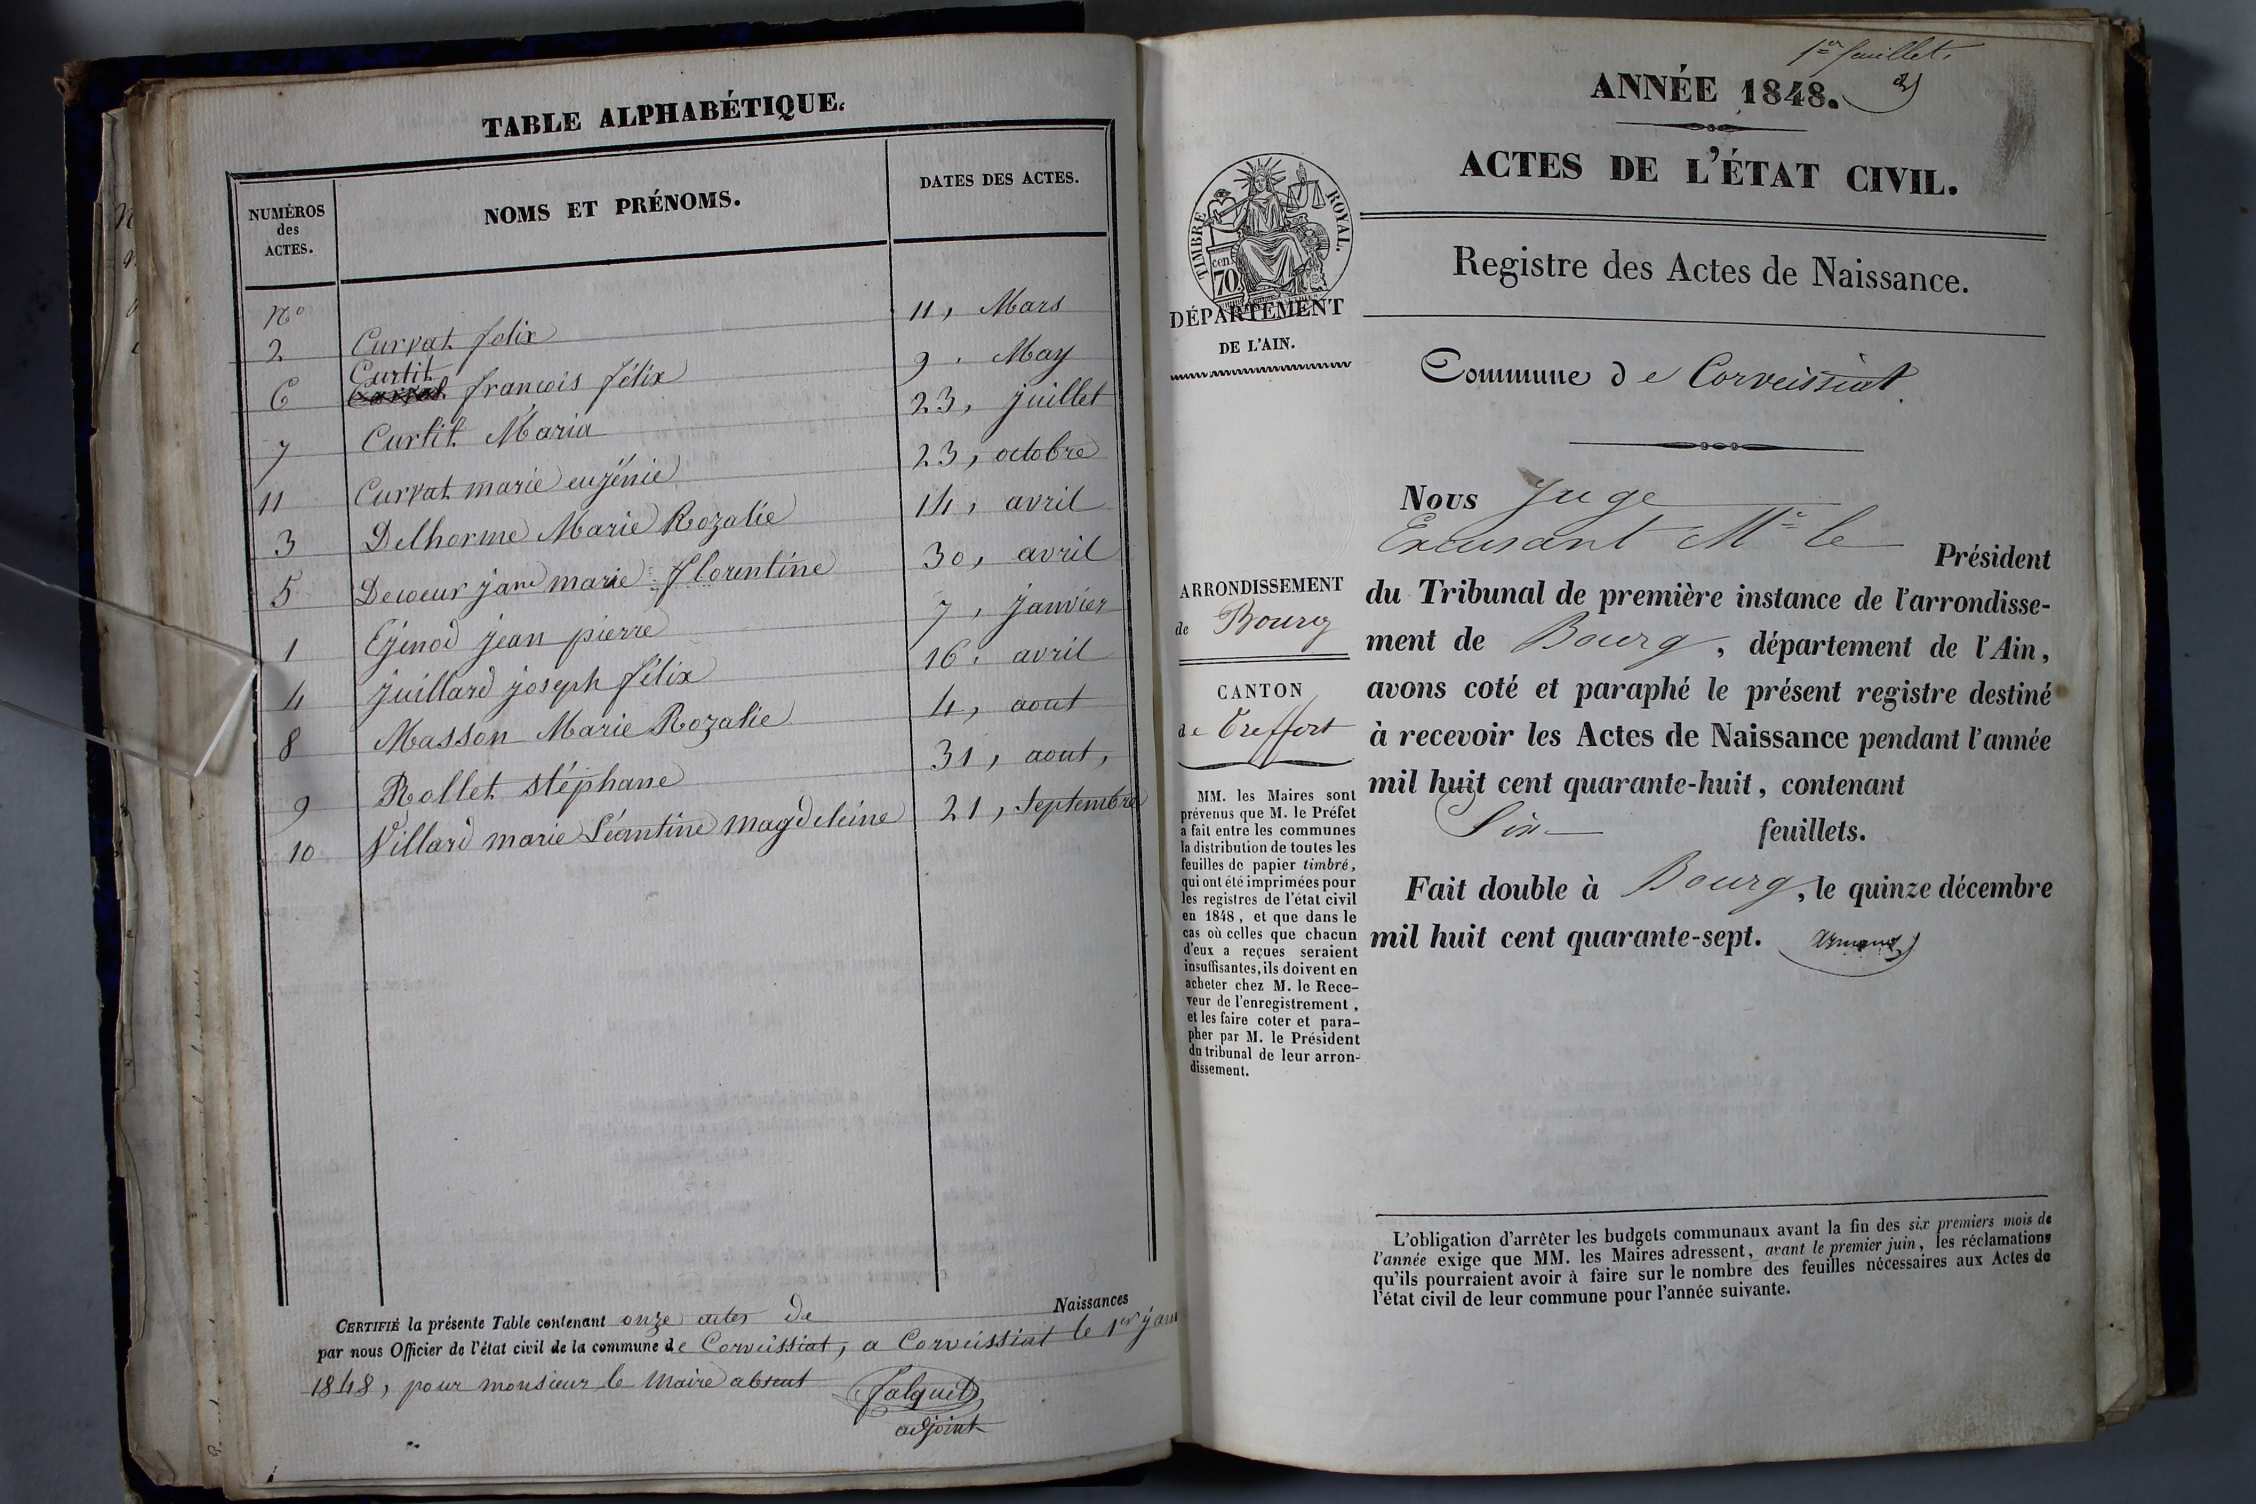 TABLE ALPHABÉTIQUE.
NUMÉROS des ACTES.
NOMS ET PRÉNOMS.
DATES DES ACTES.
No
2 Curvat felix 11, Mars
6 Curtil françois félix 9, May
7 Curtil Maria 23, juillet
11 Curvat marie eugénie 23, octobre
3 Delhorme Marie Rozalie 14, avril
5 Decoeur jane marie florentine 30, avril
1 Ejenod jean pierre 7, janvier
4 juillard joseph félix 16, avril
8 Masson Marie Rozalie 4, aout
9 Rollet stéphane 31, aout,
10 Villard marie Léantine magdeleine 21, Septembre
CERTIFIÉ la présente Table contenant onze actes de Naissances
par nous Officier de l'état civil de la commune de Corveissiat, a Corveissiat le 1er janv
1848, pour monsieur le Maire absent
Jalquet
adjoint
1er feuillet
ANNÉE 1848.
ACTES DE L'ÉTAT CIVIL.
Registre des Actes de Naissance.
TIMBRE ROYAL.
cen
70
DÉPARTEMENT
DE L'AIN.
Commune de Corveissiat
Nous Juge
Excusant Mr le Président
du Tribunal de première instance de l'arrondisse-
ment de Bourg, département de l'Ain,
avons coté et paraphé le présent registre destiné
à recevoir les Actes de Naissance pendant l'année
mil huit cent quarante-huit, contenant
Six feuillets.
Fait double à Bourg, le quinze décembre
mil huit cent quarante-sept.
ARRONDISSEMENT
de Bourg
CANTON
de Treffort
MM. les Maires sont
prévenus que M. le Préfet
a fait entre les communes
la distribution de toutes les
feuilles de papier timbré,
qui ont été imprimées pour
les registres de l'état civil
en 1848, et que dans le
cas où celles que chacun
d'eux a reçues seraient
insuffisantes, ils doivent en
acheter chez M. le Rece-
veur de l'enregistrement,
et les faire coter et para-
pher par M. le Président
du tribunal de leur arron-
dissement.
L'obligation d'arrêter les budgets communaux avant la fin des six premiers mois de
l'année exige que MM. les Maires adressent, avant le premier juin, les réclamations
qu'ils pourraient avoir à faire sur le nombre des feuilles nécessaires aux Actes de
l'état civil de leur commune pour l'année suivante.